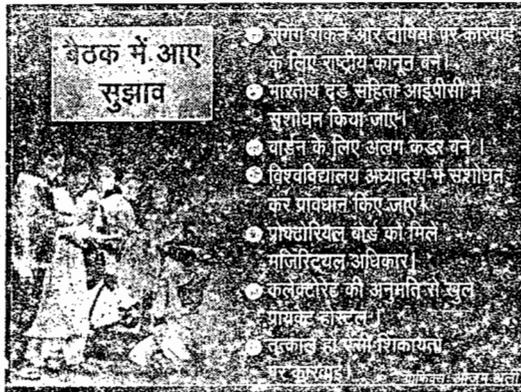 बैठक में आए
सुझाव
रैगिंग रोकने और दोषियों पर कार्रवाई
के लिए राष्ट्रीय कानून बने।
भारतीय दंड संहिता आईपीसी में
संशोधन किया जाए।
वार्डन के लिए अलग कैडर बने ।
विश्वविद्यालय अध्यादेश में संशोधन
कर प्रावधान किए जाएं।
प्रॉक्टोरियल बोर्ड को मिले
मजिस्ट्रियल अधिकार।
कलेक्टोरेट की अनुमति से खुलें
प्रायवेट होस्टल ।
तत्काल हो ऐसी शिकायतों
पर कार्रवाई।
ग्राफिक्स: